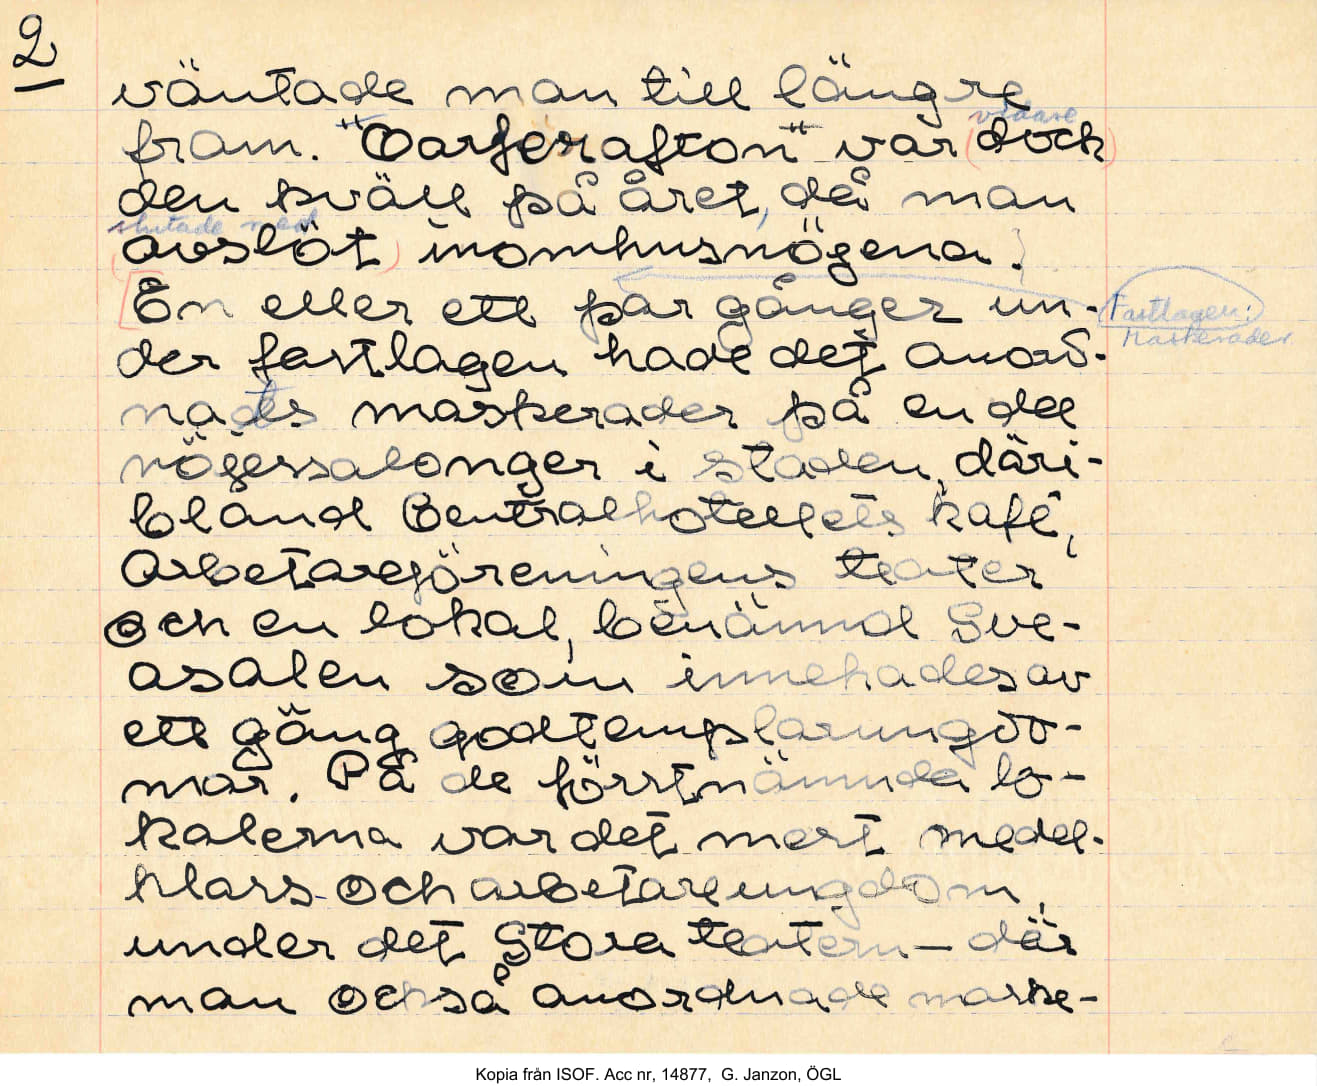 2
väntade man till längre
vidare
fram. "Oxarferafton" var (dock)
den kväll på året, då man
slutade med
(avslöt) inomhusnögena.
[En eller ett par gånger un-
Fastlagen:
Maskerader
der fastlagen hade det anord-
nats maskerader på en del
nöjessalonger i staden, däri-
bland Centralhotellets kafé,
Arbetareföreningens teater
och en lokal, benämnd Sve-
asalen som innehades av
ett gäng godtemplarungdo-
mar. På de förstnämnda lo-
kalerna var det mest medel-
klass- och arbetareungdom,
under det Stora teatern — där
man också anordnade maske-
Kopia från ISOF. Acc nr, 14877, G. Janzon, ÖGL